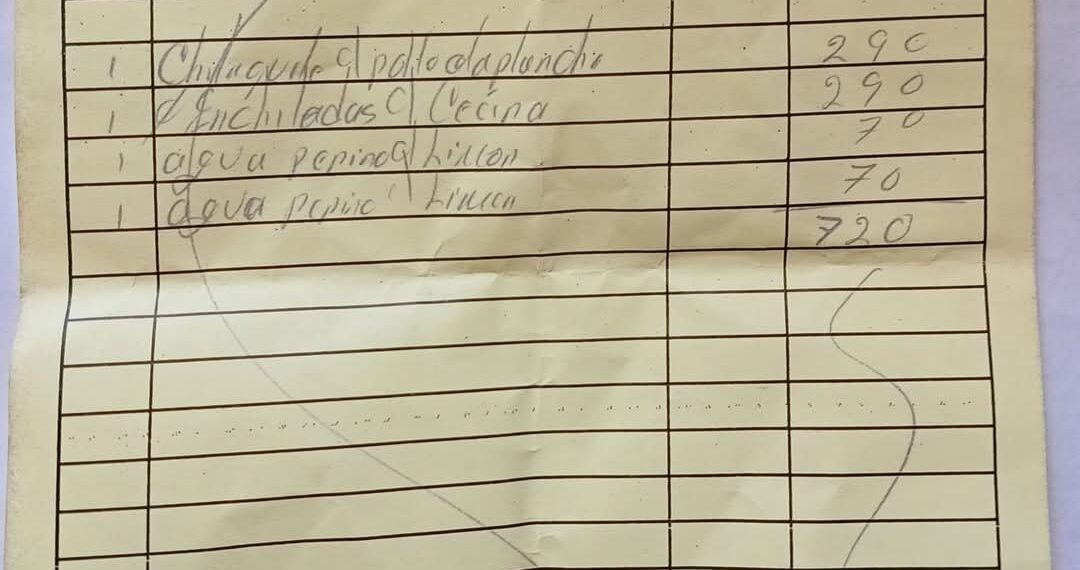 1 Chilaquile c/ pollo alaplancha 290
1 Enchiladas c/ Cecina 290
1 agua pepino c/ Limon 70
1 agua pepino c/ Limon 70
720